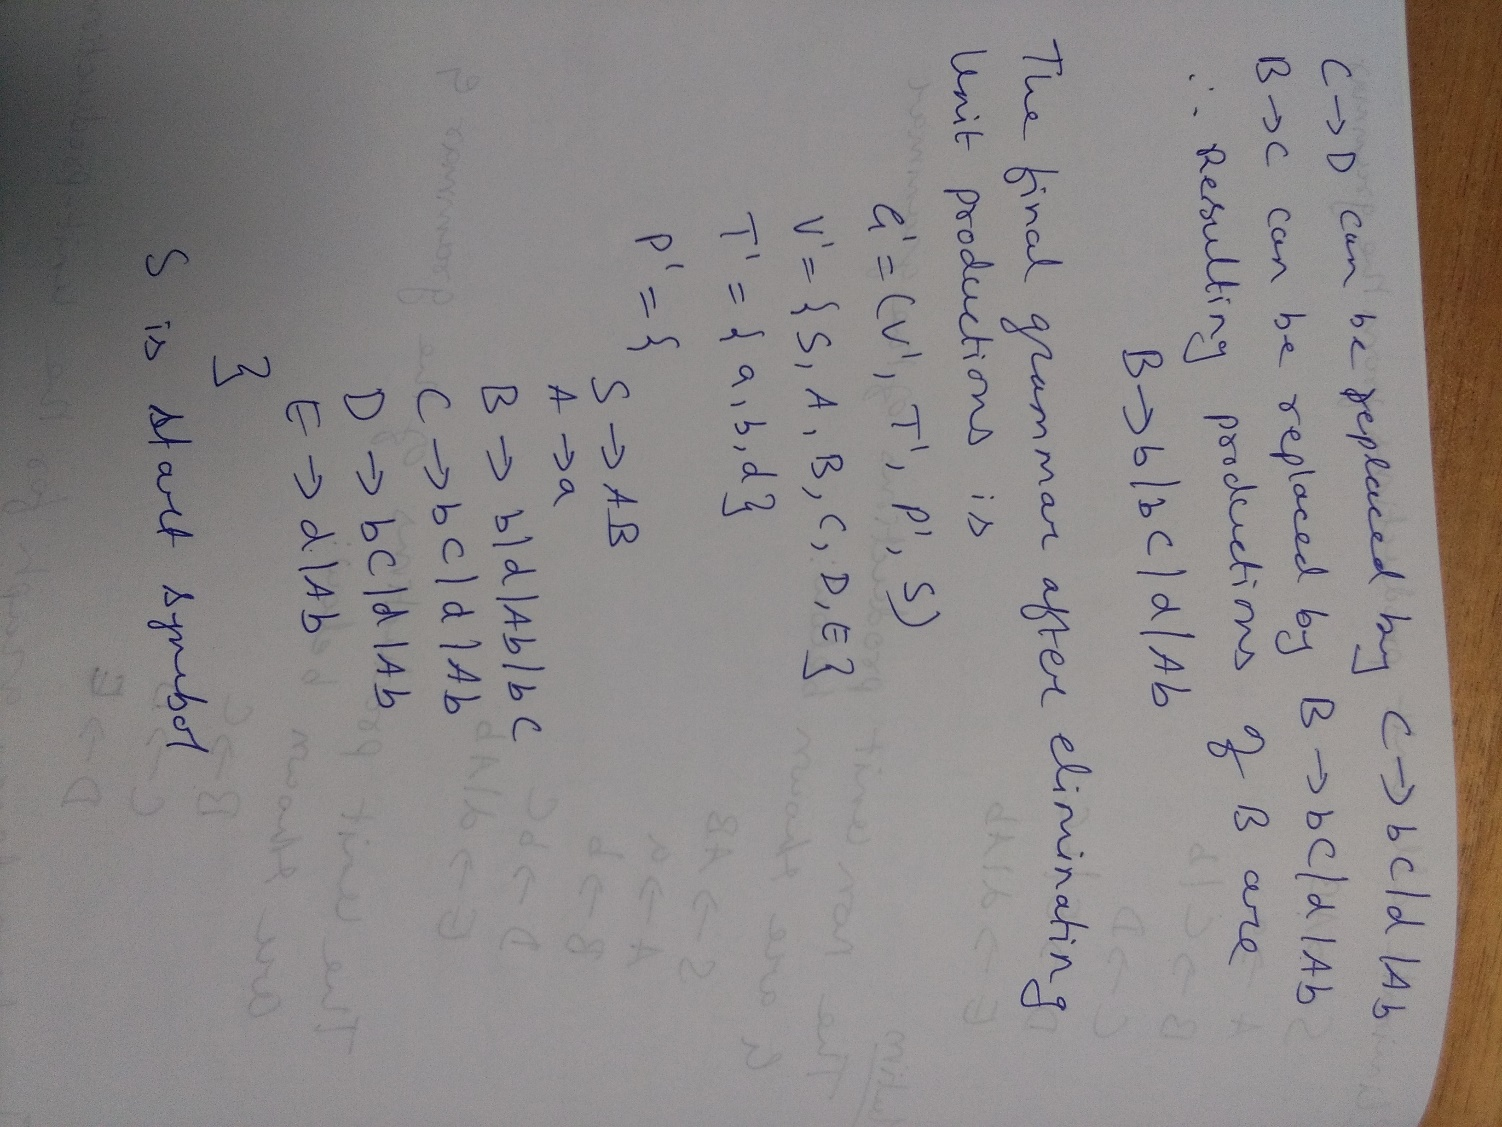 C → D can be replaced by C → bC | d | Ab
B → C can be replaced by B → bC | d | Ab
∴ Resulting productions of B are
B → b | bC | d | Ab
The final grammar after eliminating
Unit productions is
G' = (V', T', P', S)
V' = { S, A, B, C, D, E }
T' = { a, b, d }
P' = {
S → AB
A → a
B → b | d | Ab | bC
C → bC | d | Ab
D → bC | d | Ab
E → d | Ab
}
S is start symbol